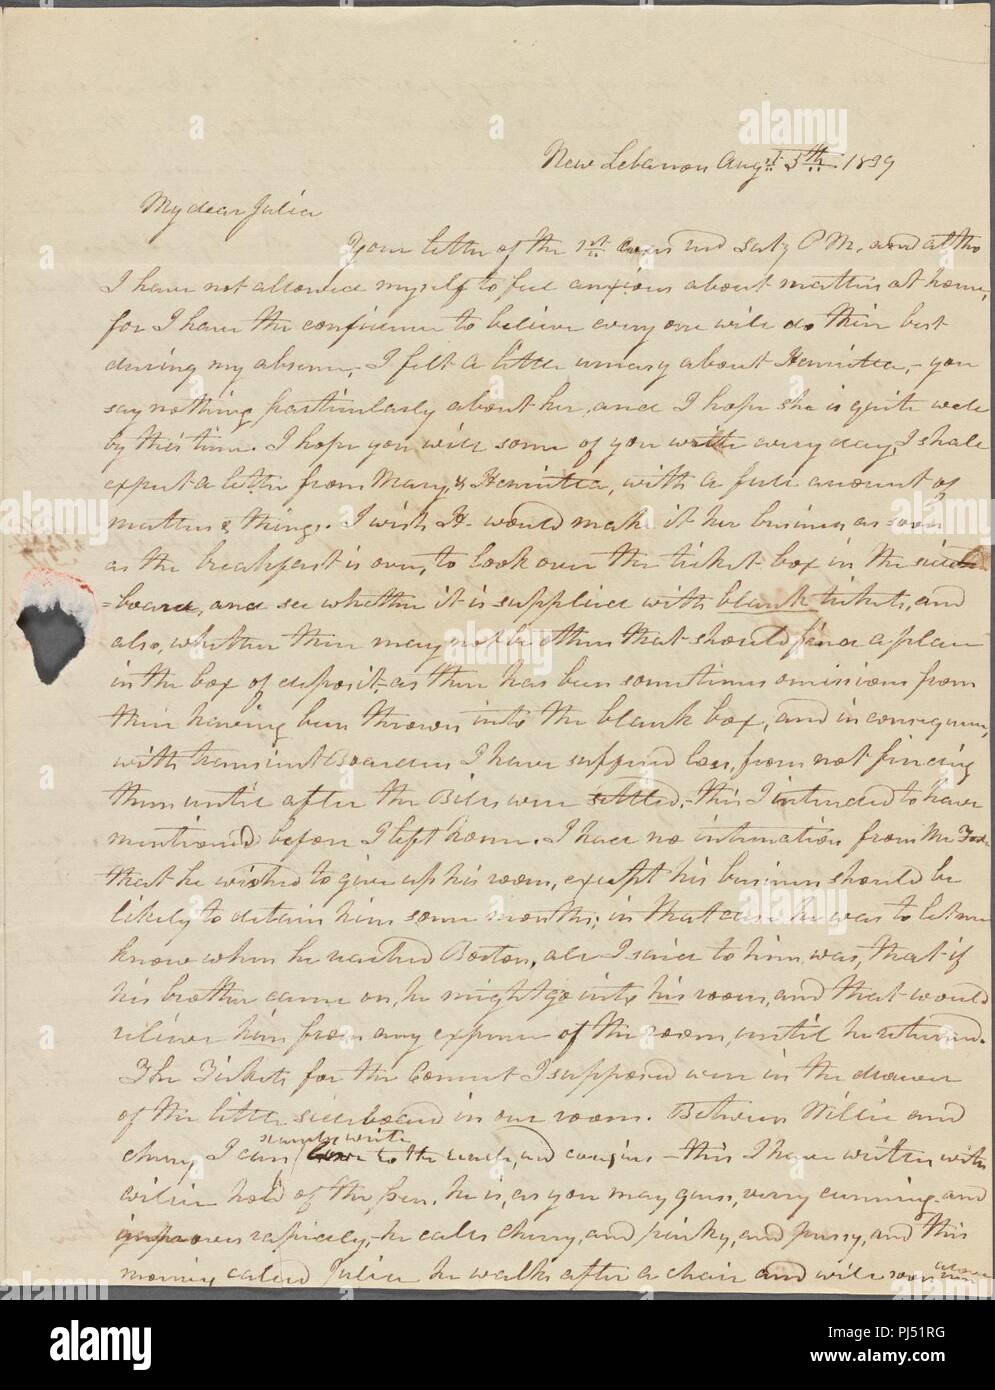 New Lebanon Augst 5th 1839
My dear Julia
Your letter of the 1st was recd Saty P M. and altho
I have not allowed myself to feel anxious about matters at home,
for I have the confidence to believe every one will do their best
during my absence, I felt a little uneasy about Henrietta, - you
say nothing particularly about her, and I hope she is quite well
by this time. I hope you will some of you write every day, I shall
expect a letter from Mary, & Henrietta, with a full amount of
matters & things. I wish H. would make it her business as soon
as the breakfast is over, to look over the ticket box in the side
=board, and see whether it is supplied with blank tickets, and
also, whether there may not be others that should find a place
in the box of deposit, as there has been sometimes omissions from
their having been thrown into the blank box, and in consequence,
with transient Boarders I have suffered loss, from not finding
them until after the Bills were settled, - this I intended to have
mentioned before I left home. I had no intimation from Mr
that he wished to give up his room, except his business should be
likely to detain him some months, in that case he was to let me
know when he reached Boston, all I said to him was, that if
his brother came on, he might go into his room, and that would
relieve him from any expense of the room, until he returned.
The Tickets for the Concert I supposed were in the drawer
of the little sideboard in our room. Between Willie and
cherry I can scarcely write to the uncle, and cousins - this I have written with
willie hold of the pen. he is, as you may guess, very cunning and
improves rapidly, - he calls cherry, and pinky, and pussy, and this
morning called Julia he walks after a chair and will soon alone
alamy
PJ51RG
www.alamy.com